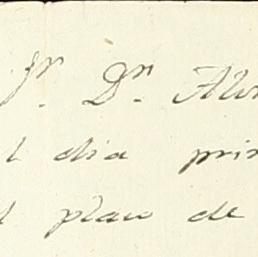 Sr. Dr. Alv
l dia prin
l plan de